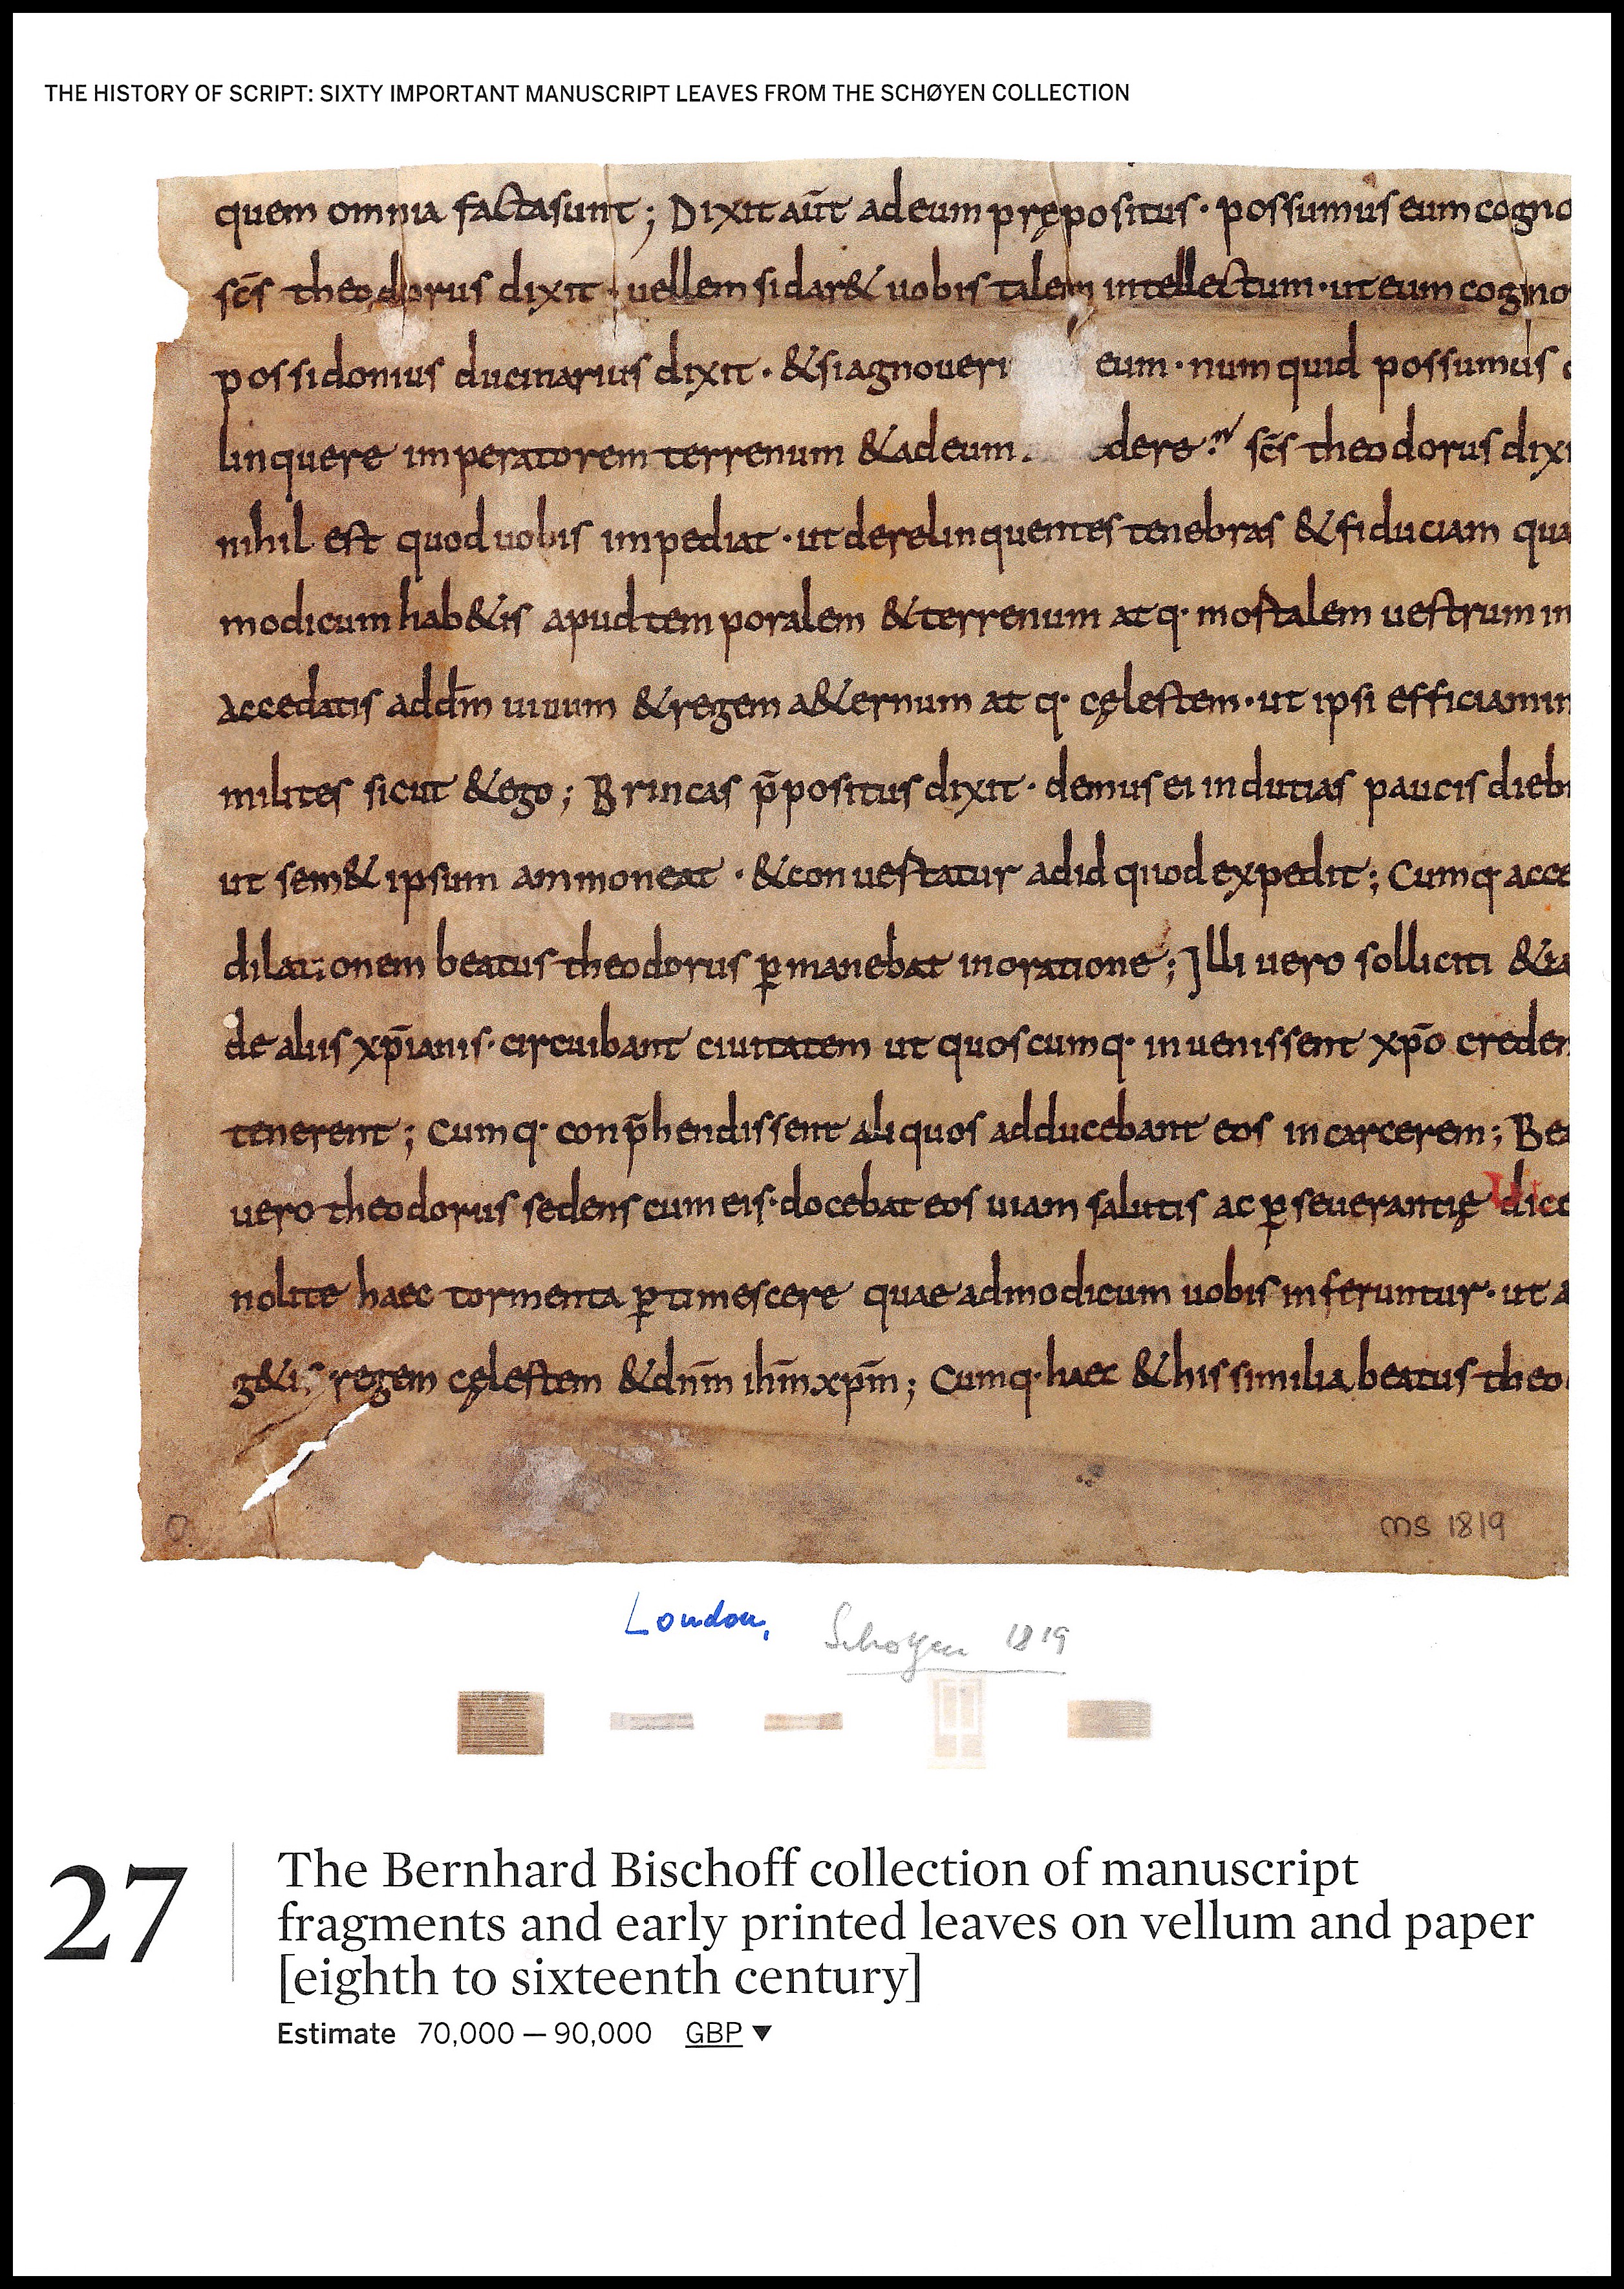 THE HISTORY OF SCRIPT: SIXTY IMPORTANT MANUSCRIPT LEAVES FROM THE SCHØYEN COLLECTION
quem omnia facta sunt; Dixit aūt ad eum prępositus· possumus eum cogno
sc̄s theodorus dixit· uellem si dar& uobis talem intellectum· ut eum cogno
possidonius ducinarius dixit· & si agnoueri eum· numquid possumus
linquere imperatorem terrenum & ad eum dere? sc̄s theodorus dixi
nihil est quod uobis impediat· ut derelinquentes tenebras & fiduciam qua
modicum hab&is apud temporalem & terrenum atq· mortalem uestrum im
Accedatis ad dm̄ uiuum & regem a&ernum atq· cęlestem· ut ipsi efficiamin
milites sicut & ego; Brincas p̄positus dixit· demus ei indutias paucis dieb
ut sem& ipsum ammoneat· & conuertatur ad id quod expedit; Cumq· acce
dilationem beatus theodorus ꝑmanebat in oratione; Illi uero solliciti &
de aliis xp̄ianis· circuibant ciuitatem ut quoscumq· inuenissent xp̄o creden
tenerent; Cumq· conp̄hendissent aliquos adducebant eos in carcerem; Bea
uero theodorus sedens cum eis· docebat eos uiam salutis ac ꝑseuerantię dice
nolite haec tormenta ꝑtimescere quae ad modicum uobis inferuntur· ut a
g&is regem cęlestem & dnm̄ ihm̄ xpm̄; Cumq· haec & his similia beatus theo
MS 1819
London, Schoyen 1819
27
The Bernhard Bischoff collection of manuscript
fragments and early printed leaves on vellum and paper
[eighth to sixteenth century]
Estimate 70,000 — 90,000 GBP ▼